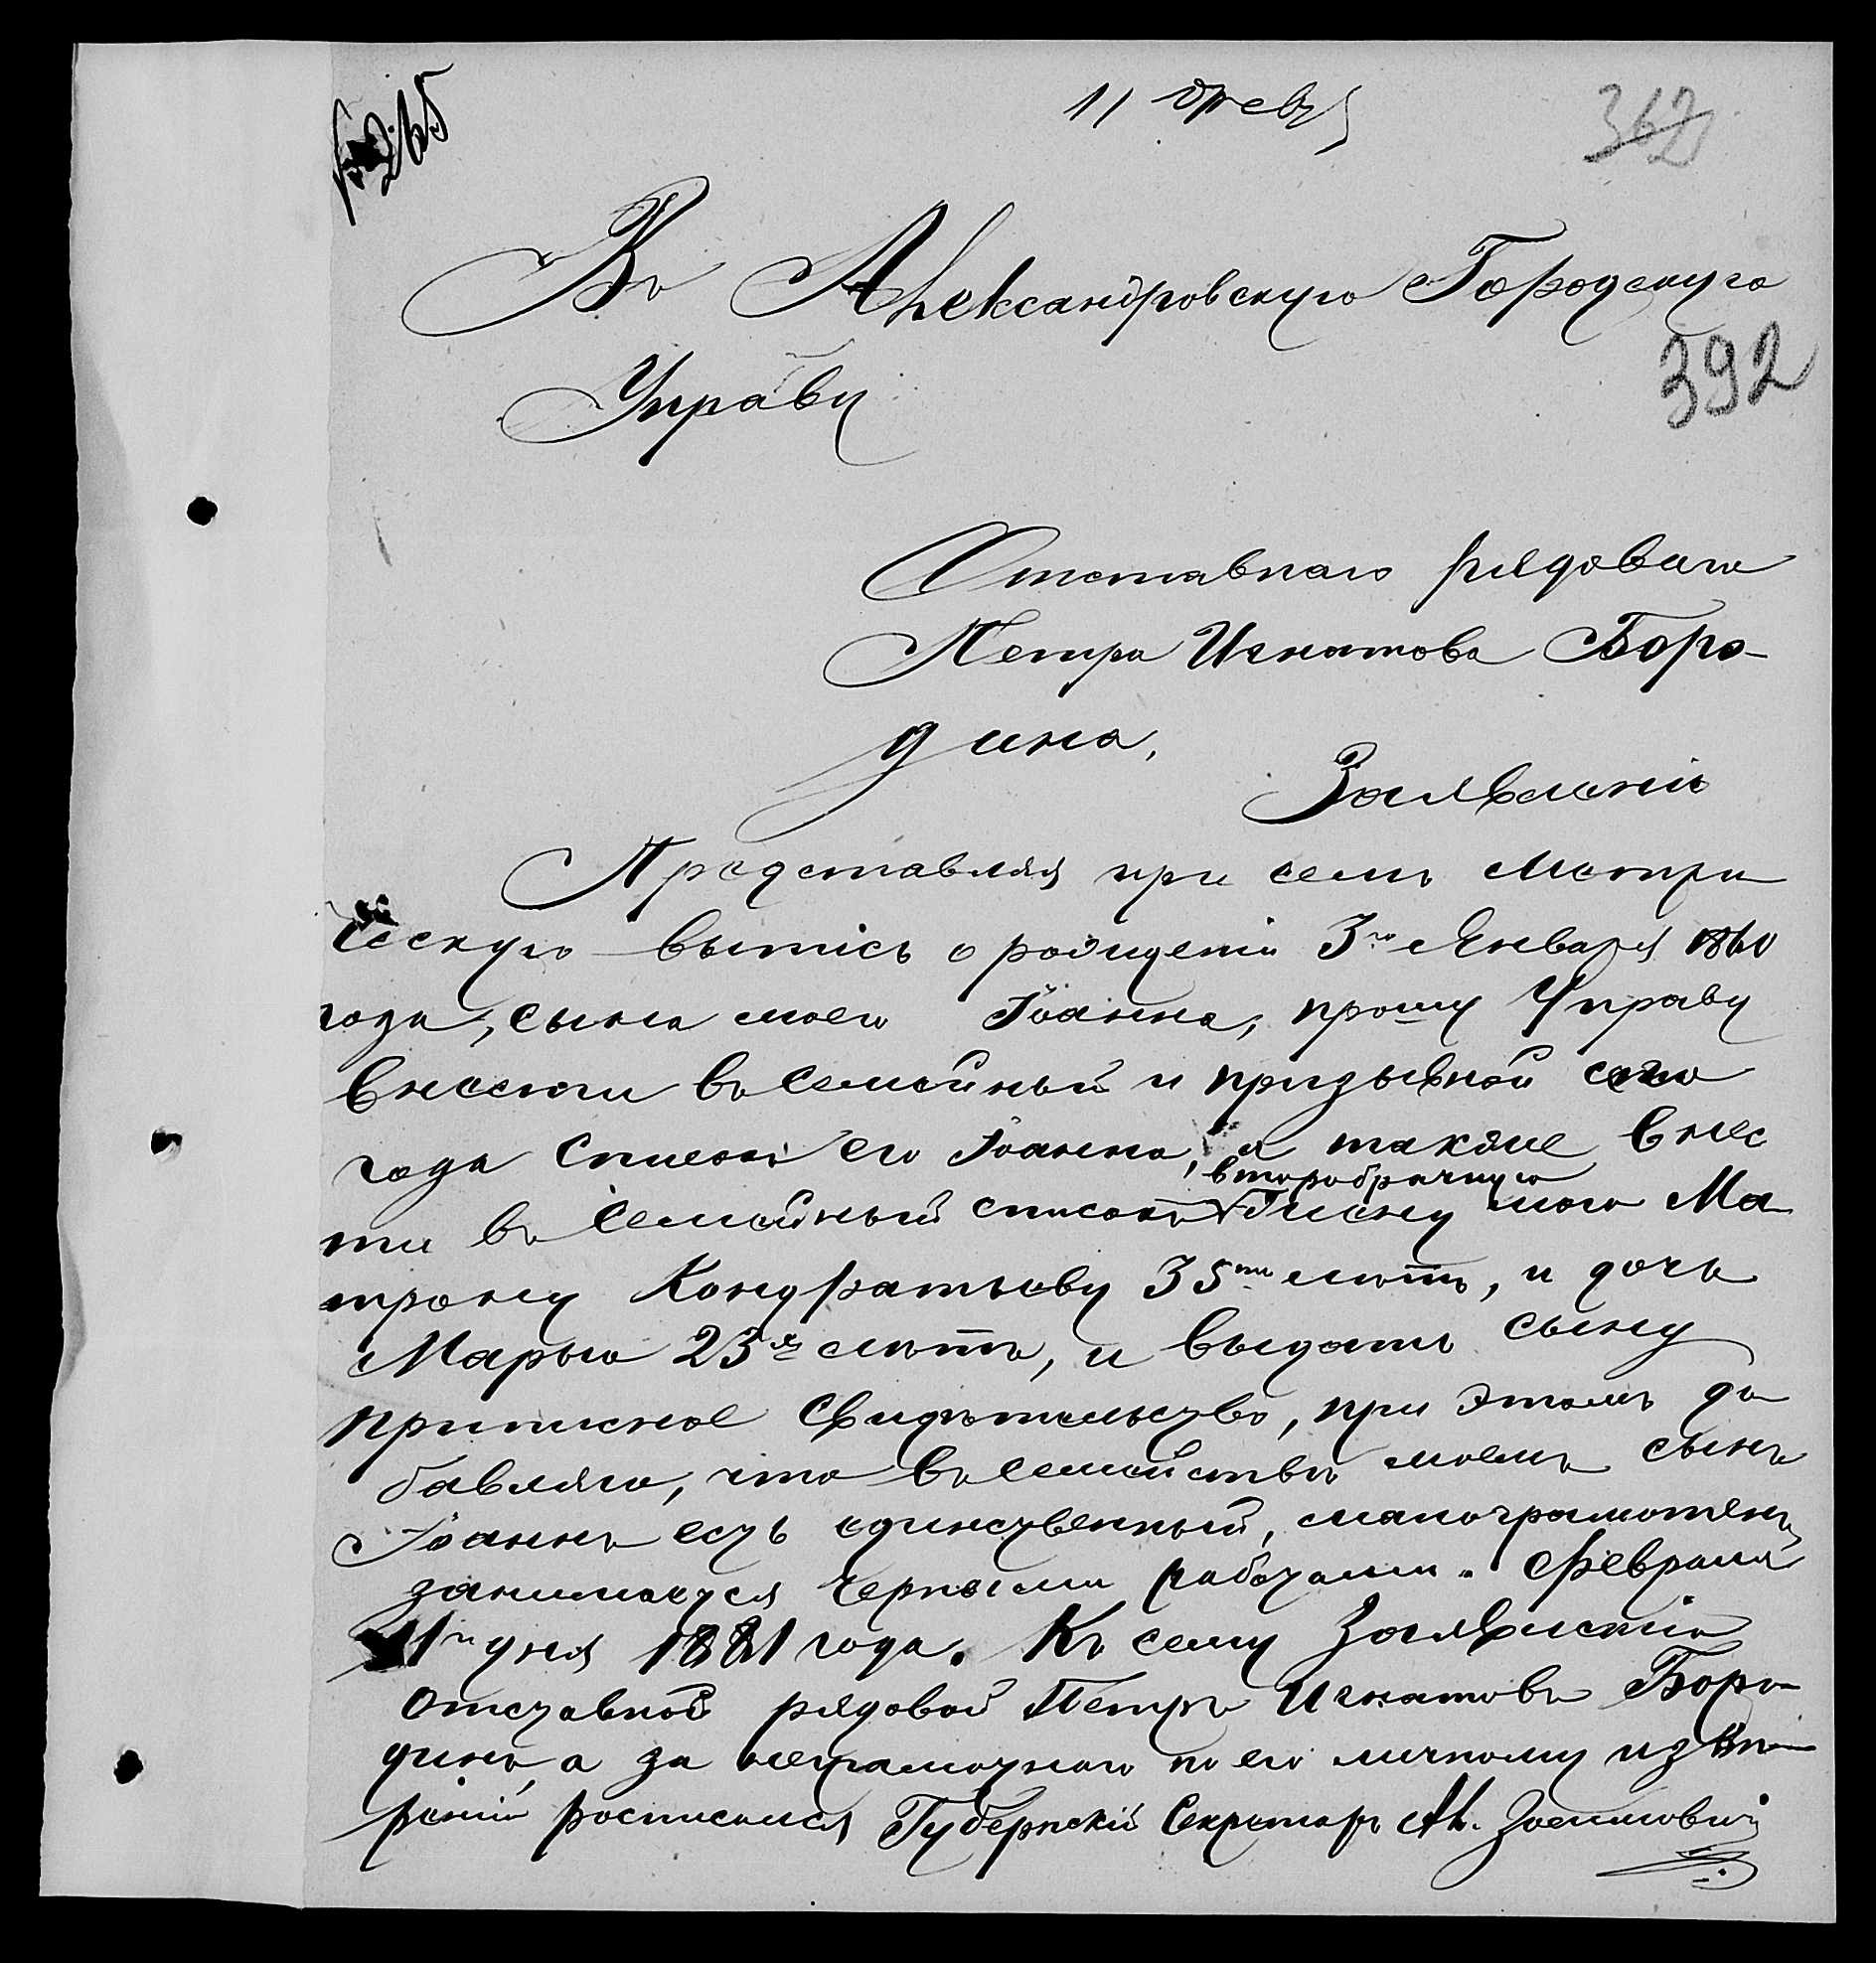 № 265
11 февр
362
Въ Александровскую Городскую
392
Управу
Отставнаго рядоваго
Петра Игнатова Боро-
дина,
Заявленіе
Представляя при семъ Метри
ческую выпись о рожденіи 3го Января 1860
года, сына моего Іоанна, прошу Управу
внести въ семейный и призывной сего
года списки его Іоанна, а также внес
второбрачную
ти въ Семейный списокъ жену мою Ма
трону Кондратьеву 35ти летъ, и дочь
Марью 23х летъ, и выдать сыну
приписное свидѣтельство, при этомъ до
бавляю, что въ семействѣ моемъ сынъ
Іоаннъ есть единственный, малограмотенъ,
занимается черными работами. Февраля
11го дня 1881 года. Къ сему Заявленію
отставной рядовой Петръ Игнатовъ Боро
динъ, а за неграмотнаго по его личному
росписался Губернскій Секретарь